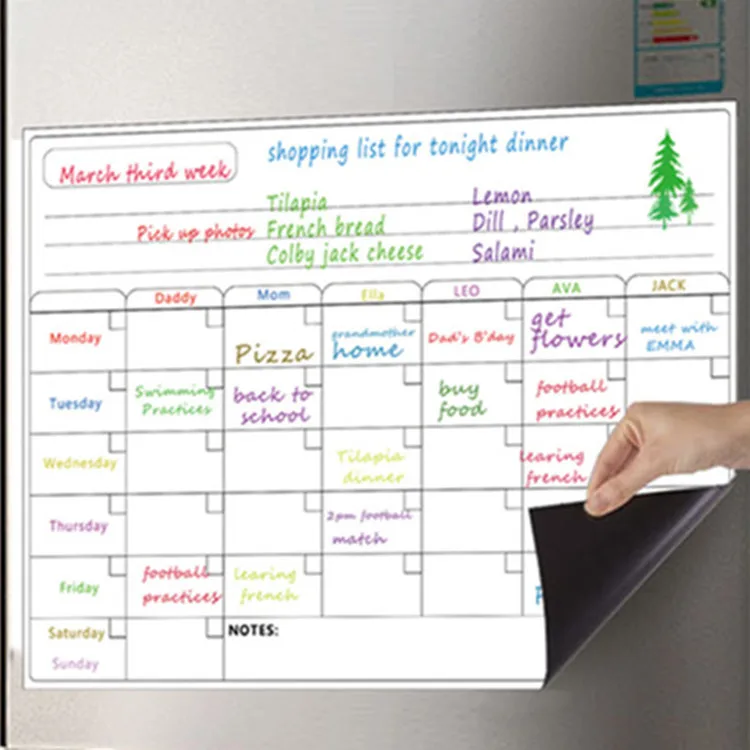 shopping list for tonight dinner
March third week
Tilapia Lemon
Pick up photos French bread Dill , Parsley
Colby jack cheese Salami
Daddy Mom Ella LEO AVA JACK
Monday
Pizza
grandmother
home
Dad's B'day
get
flowers
meet with
EMMA
Tuesday
Swimming
Practices
back to
school
buy
food
football
practices
Wednesday
Tilapia
dinner
learing
french
Thursday
2pm football
match
Friday
football
practices
learing
french
Saturday
Sunday
NOTES: